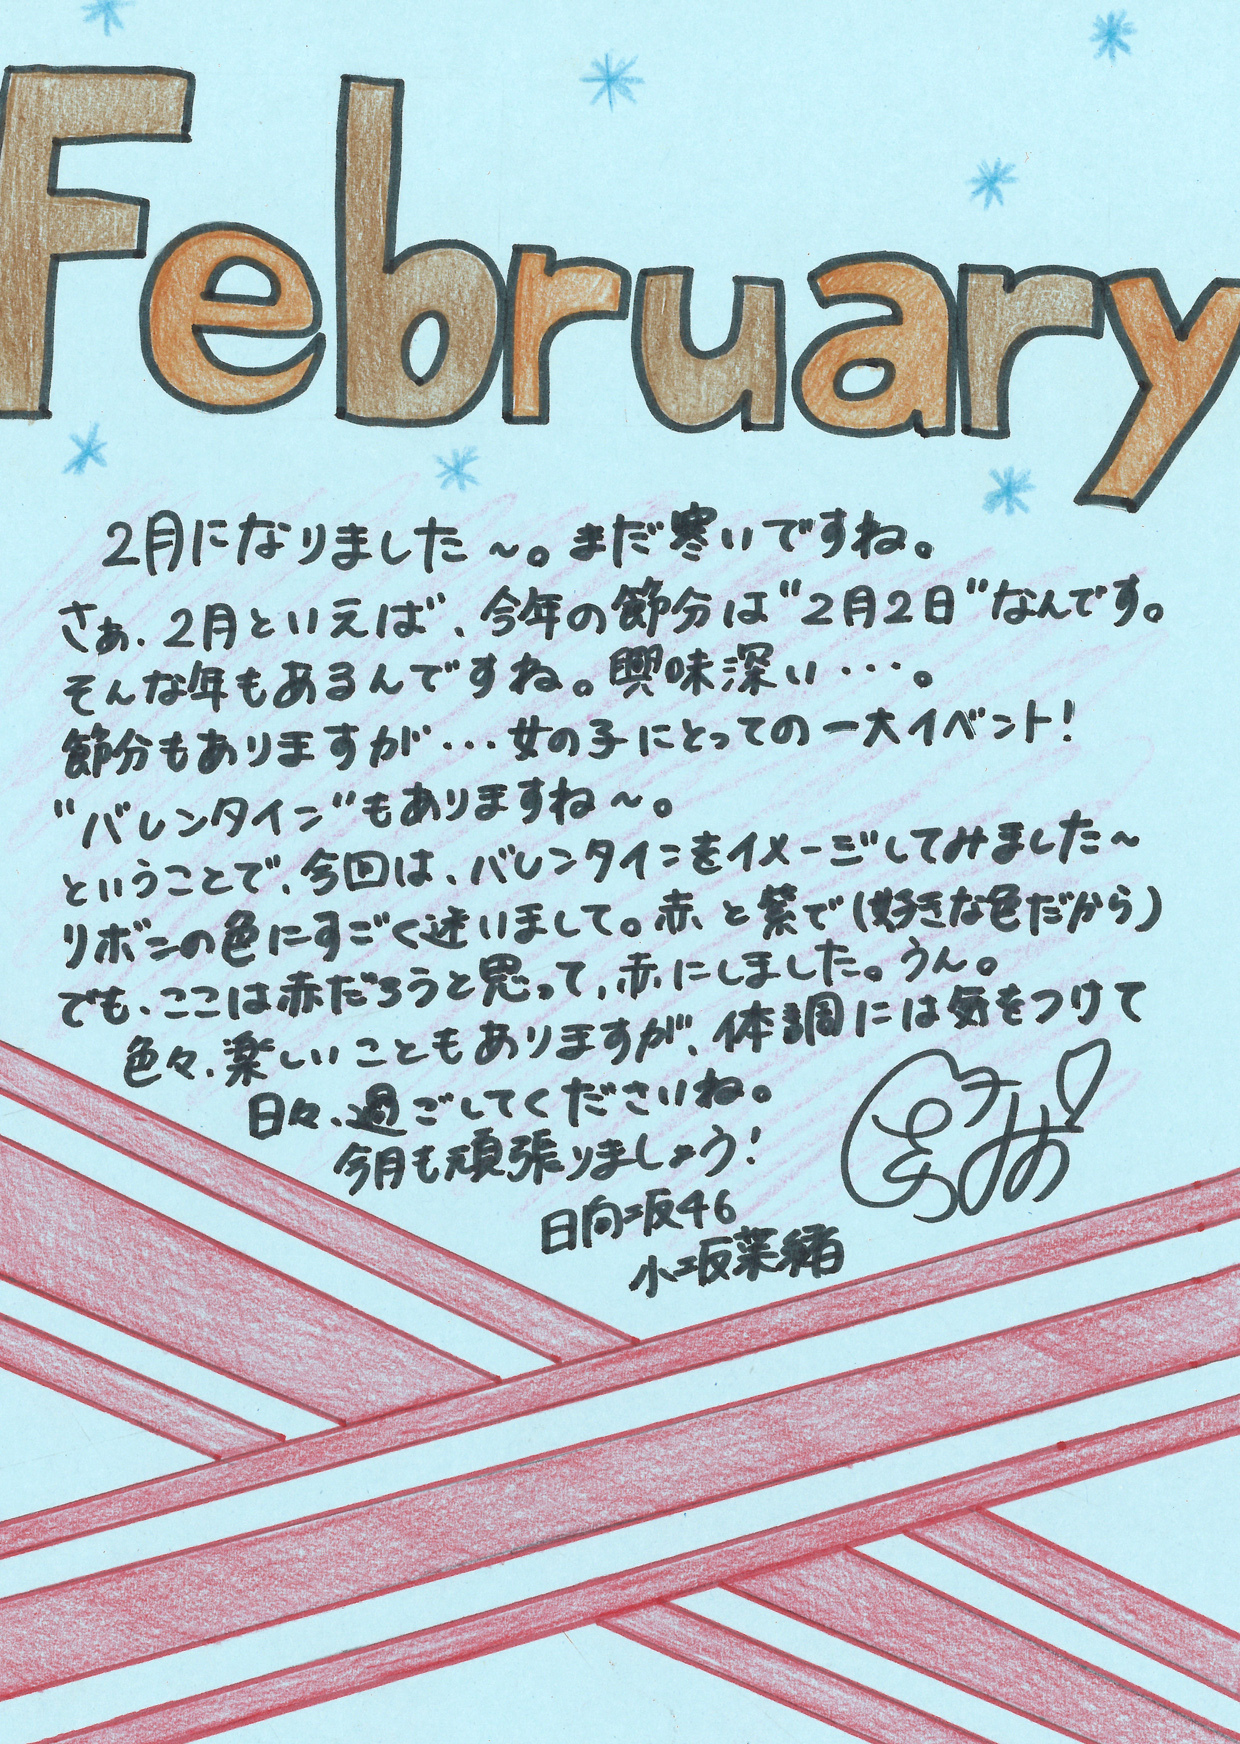 February
2月になりました～。まだ寒いですね。
さぁ、2月といえば、今年の節分は"2月2日"なんです。
そんな年もあるんですね。興味深い・・・。
節分もありますが・・・女の子にとっての一大イベント!
"バレンタイン"もありますね～。
ということで、今回は、バレンタインをイメージしてみました～
リボンの色にすごく迷いまして。赤と紫で(好きな色だから)
でも、ここは赤だろうと思って、赤にしました。うん。
色々、楽しいこともありますが、体調には気をつけて
日々、過ごしてくださいね。
今月も頑張りましょう!
日向坂46
小坂菜緒